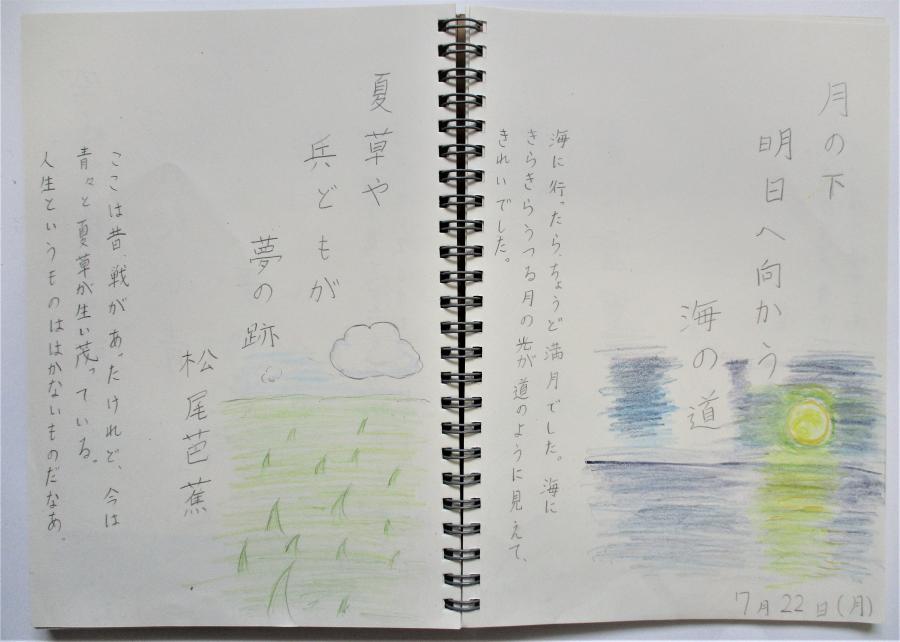 月の下
明日へ向かう
海の道
海に行ったら、ちょうど満月でした。海に
きらきらうつる月の光が道のように見えて、
きれいでした。
7月22日(月)
夏草や
兵どもが
夢の跡
松尾芭蕉
ここは昔、戦があったけれど、今は
青々と夏草が生い茂っている。
人生というものははかないものだなあ。